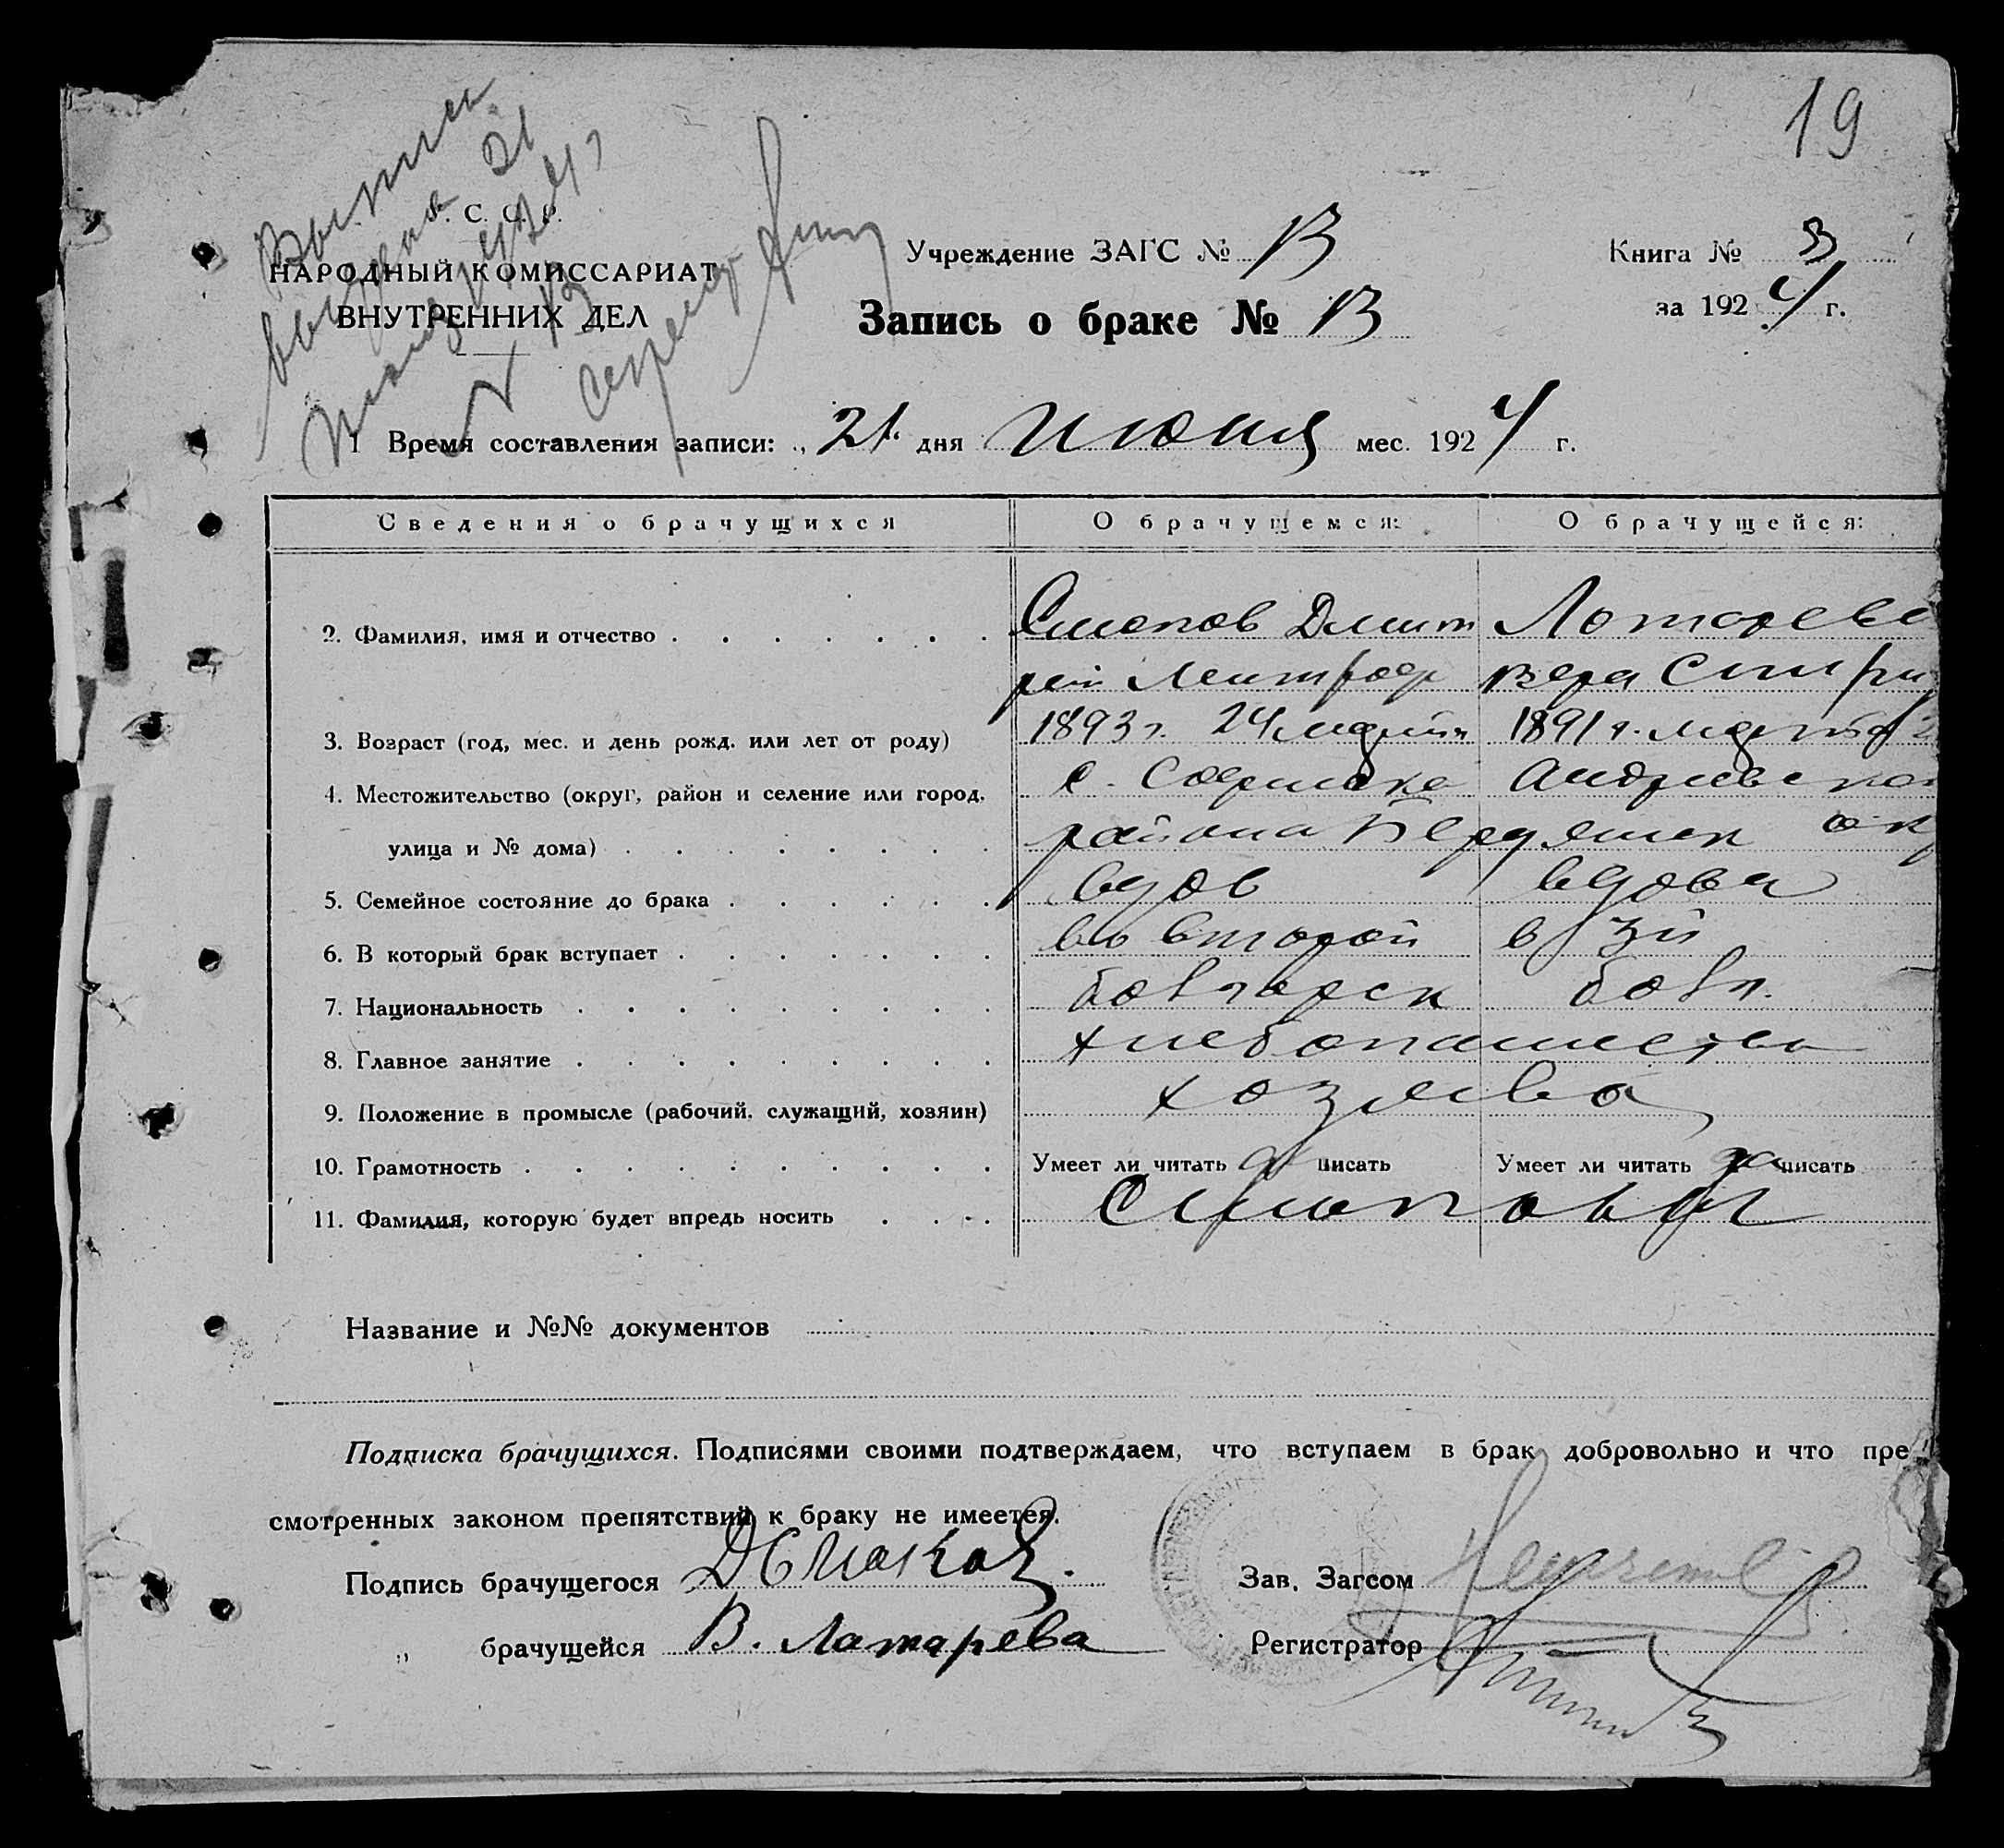 19
Выпись
выдана 21
С. С. Р.
НАРОДНЫЙ КОМИССАРИАТ
ВНУТРЕННИХ ДЕЛ
Учреждение ЗАГС № 13
Книга № 3
Запись о браке № 13
за 1924 г.
1 Время составления записи: „21" дня июня мес. 1924 г.
Сведения о брачущихся О брачущемся: О брачущейся:
2. Фамилия, имя и отчество Дмит Лотарева
рий Вера Спири
3. Возраст (год, мес. и день рожд. или лет от роду) 1893 г. 24 1891 г. марта
4. Местожительство (округ, район и селение или город, с. Андриевского
улица и № дома) района Бердянск окр
5. Семейное состояние до брака вдов вдова
6. В который брак вступает во второй в 3й
7. Национальность болгарск болг.
8. Главное занятие хлебопашество
9. Положение в промысле (рабочий, служащий, хозяин) хозяева
10. Грамотность Умеет ли читать да писать Умеет ли читать да писать
11. Фамилия, которую будет впредь носить
Название и №№ документов
Подписка брачущихся. Подписями своими подтверждаем, что вступаем в брак добровольно и что пре
смотренных законом препятствий к браку не имеется.
Подпись брачущегося
Зав. Загсом
„ брачущейся В. Латарева
Регистратор